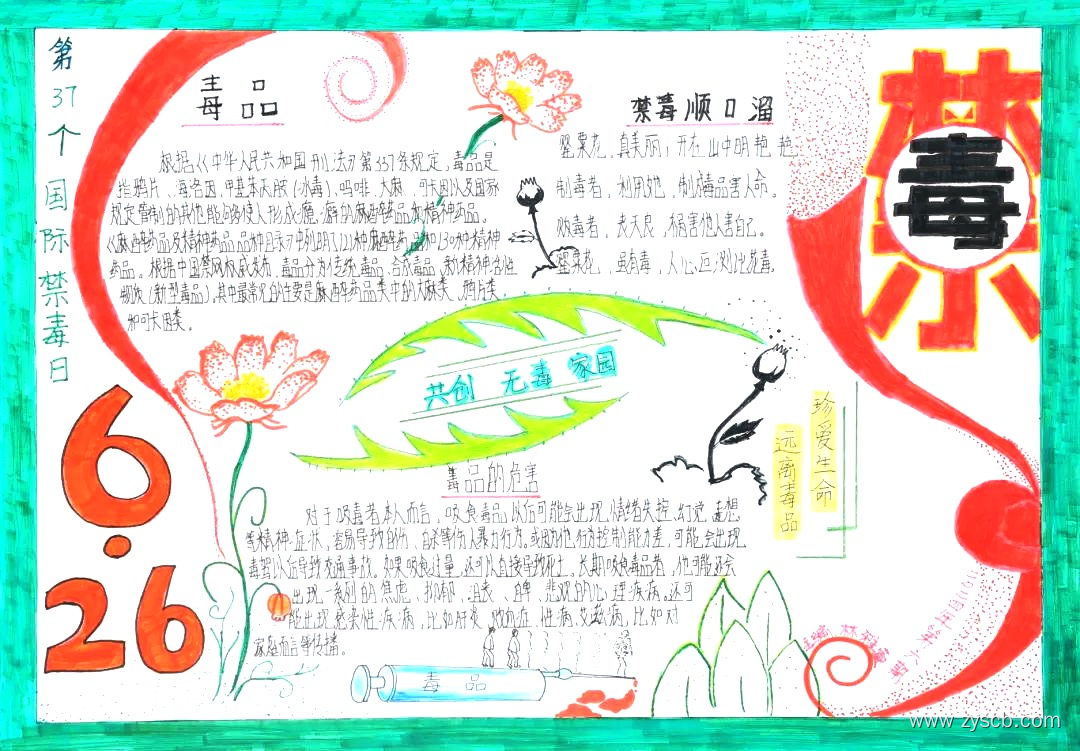 第
37
个
国
际
禁
毒
日
6.26
毒品
根据《中华人民共和国刑法》第357条规定，毒品是
指鸦片、海洛因、甲基苯丙胺（冰毒）、吗啡、大麻、可卡因以及国家
规定管制的其他能够使人形成瘾癖的麻醉药品和精神药品。
《麻醉药品及精神药品品种目录》中列明了121种麻醉药品和130种精神
药品。根据中国禁毒网权威发布，毒品分为传统毒品、合成毒品、新精神活性
物质（新型毒品），其中最常见的主要是麻醉药品类中的大麻类、鸦片类
和可卡因类。
禁毒顺口溜
罂粟花，真美丽，开在山中明艳艳
制毒者，利用她，制成毒品害人命。
贩毒者，丧天良，祸害他人害自己。
罂粟花，虽有毒，人心叵测比花毒。
禁
毒
共创 无毒 家园
珍爱生命
远离毒品
毒品的危害
对于吸毒者本人而言，吸食毒品以后可能会出现情绪失控、幻觉、妄想
等精神症状，容易导致自伤、自杀等伤人暴力行为。或因为他行为控制能力差，可能会出现
毒驾从而导致交通事故。如果吸食过量，还可以直接导致死亡。长期吸食毒品者，他可能还会
出现一系列的焦虑、抑郁、沮丧、自卑、悲观的心理疾病。还可
能出现感染性疾病，比如肝炎、败血症、性病、艾滋病，比如对
家庭而言等传播。
毒 品
www.zyscb.com